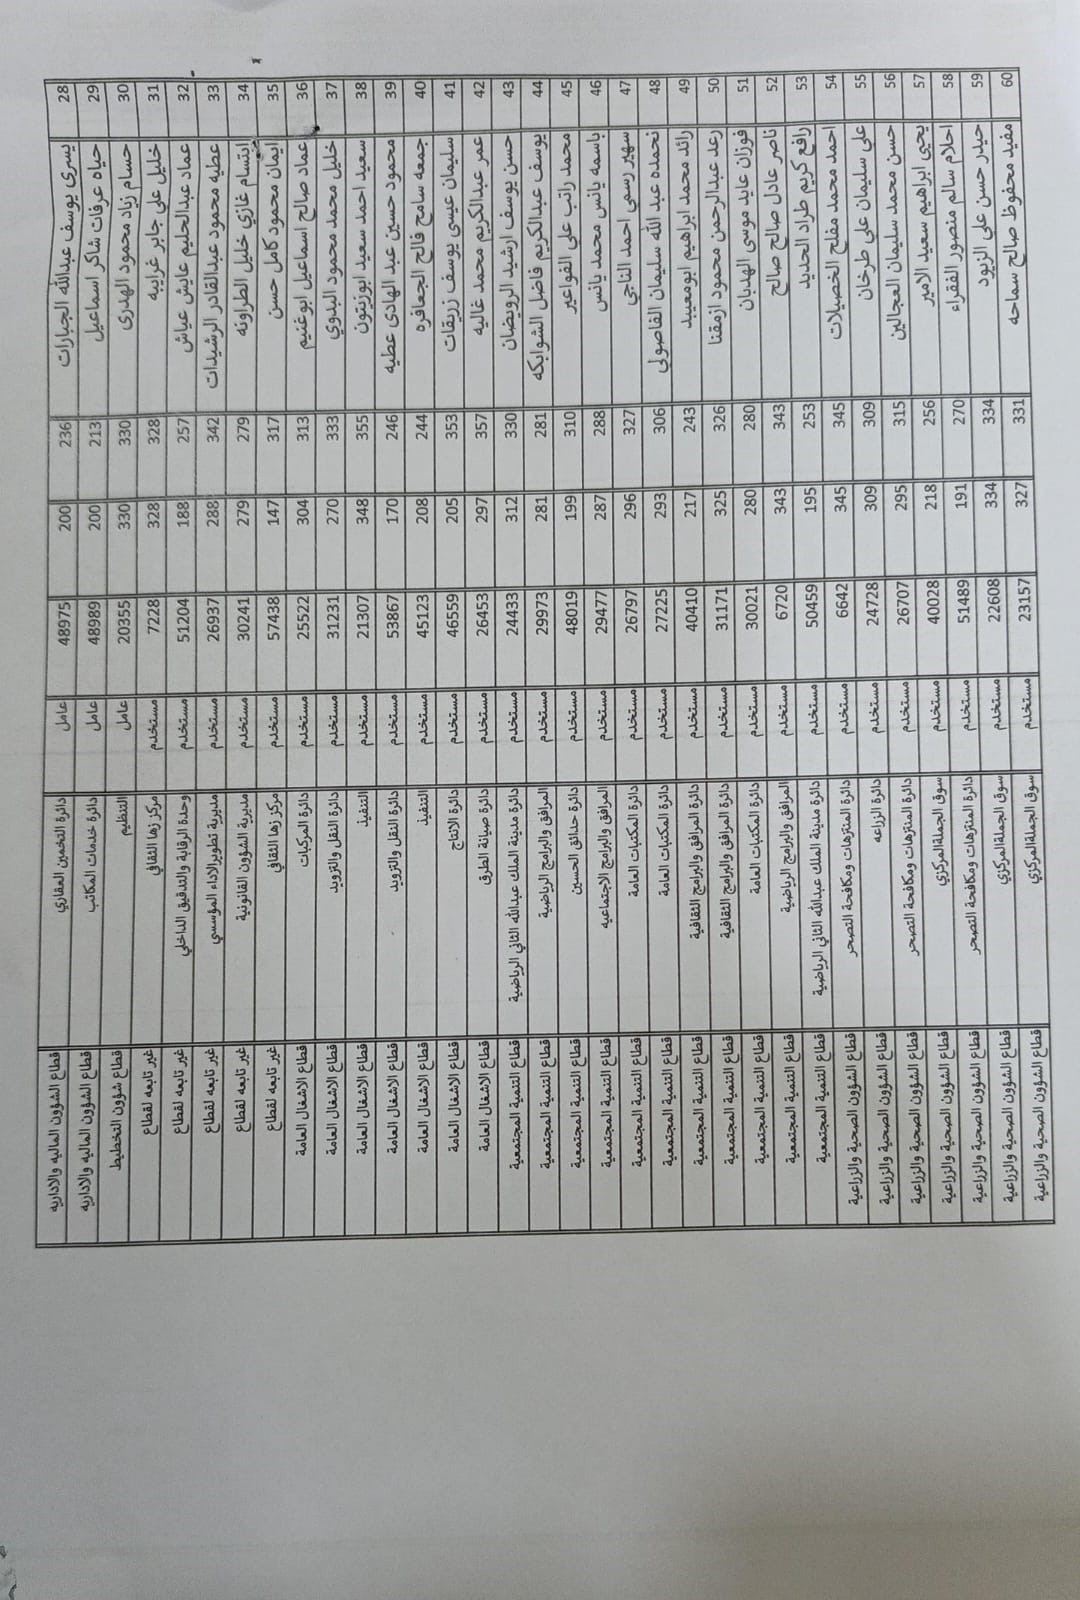 28 يسرى يوسف عبدالله الجبارات 236 200 48975 عامل دائرة التخمين العقاري قطاع الشؤون الماليه والاداريه
29 حياه عرفات شاكر اسماعيل 213 200 48989 عامل دائرة خدمات المكاتب قطاع الشؤون الماليه والاداريه
30 حسام زياد محمود الهدرى 330 330 20355 عامل التنظيم قطاع شؤون التخطيط
31 خليل علي جابر غرايبه 328 328 7228 مستخدم مركز زها الثقافي غير تابعه لقطاع
32 عماد عبدالحليم عايش عياش 257 188 51204 مستخدم وحدة الرقابة والتدقيق الداخلي غير تابعه لقطاع
33 عطيه محمود عبدالقادر الرشيدات 342 288 26937 مستخدم مديرية تطوير الاداء المؤسسي غير تابعه لقطاع
34 ابتسام غازي خليل الطراونه 279 279 30241 مستخدم مديرية الشؤون القانونية غير تابعه لقطاع
35 ايمان محمود كامل حسن 317 147 57438 مستخدم مركز زها الثقافي غير تابعه لقطاع
36 عماد صالح اسماعيل ابوغنيم 313 304 25522 مستخدم دائرة المركبات قطاع الاشغال العامة
37 خليل محمد محمود البدوي 333 270 31231 مستخدم دائرة النقل والتزويد قطاع الاشغال العامة
38 سعيد احمد سعيد ابوزيتون 355 348 21307 مستخدم التنفيذ قطاع الاشغال العامة
39 محمود حسين عبد الهادى عطيه 246 170 53867 مستخدم دائرة النقل والتزويد قطاع الاشغال العامة
40 جمعه سامح فالح الجعافره 244 208 45123 مستخدم التنفيذ قطاع الاشغال العامة
41 سليمان عيسى يوسف زريقات 353 205 46559 مستخدم دائرة الانتاج قطاع الاشغال العامة
42 عمر عبدالكريم محمد غاليه 357 297 26453 مستخدم دائرة صيانة الطرق قطاع الاشغال العامة
43 حسن يوسف ارشيد الرويضان 330 312 24433 مستخدم دائرة مدينة الملك عبدالله الثاني الرياضية قطاع التنمية المجتمعية
44 يوسف عبدالكريم فاضل الشوابكه 281 281 29973 مستخدم المرافق والبرامج الرياضية قطاع التنمية المجتمعية
45 محمد راتب علي الفواعير 310 199 48019 مستخدم دائرة حدائق الحسين قطاع التنمية المجتمعية
46 باسمه يانس محمد يانس 288 287 29477 مستخدم المرافق والبرامج الاجتماعيه قطاع التنمية المجتمعية
47 سهير رسمي احمد الناجي 327 296 26797 مستخدم دائرة المكتبات العامة قطاع التنمية المجتمعية
48 نحمده عبد الله سليمان الفاصولى 306 293 27225 مستخدم دائرة المكتبات العامة قطاع التنمية المجتمعية
49 رائد محمد ابراهيم ابومعيبد 243 217 40410 مستخدم دائرة المرافق والبرامج الثقافية قطاع التنمية المجتمعية
50 رعد عبدالرحمن محمود ازمقنا 326 325 31171 مستخدم دائرة المرافق والبرامج الثقافية قطاع التنمية المجتمعية
51 فوزان عايد موسى الهدبان 280 280 30021 مستخدم دائرة المكتبات العامة قطاع التنمية المجتمعية
52 ناصر عادل صالح صالح 343 343 6720 مستخدم المرافق والبرامج الرياضية قطاع التنمية المجتمعية
53 رافع كريم طراد الحديد 253 195 50459 مستخدم دائرة مدينة الملك عبدالله الثاني الرياضية قطاع التنمية المجتمعية
54 احمد محمد مفلح الخصيلات 345 345 6642 مستخدم دائرة المتنزهات ومكافحة التصحر قطاع الشؤون الصحية والزراعية
55 علي سليمان علي طرخان 309 309 24728 مستخدم دائرة الزراعه قطاع الشؤون الصحية والزراعية
56 حسن محمد سليمان العجالين 315 295 26707 مستخدم دائرة المتنزهات ومكافحة التصحر قطاع الشؤون الصحية والزراعية
57 يحيى ابراهيم سعيد الامير 256 218 40028 مستخدم سوق الجملةالمركزي قطاع الشؤون الصحية والزراعية
58 احلام سالم منصور الفقراء 270 191 51489 مستخدم دائرة المتنزهات ومكافحة التصحر قطاع الشؤون الصحية والزراعية
59 حيدر حسن علي الزيود 334 334 22608 مستخدم سوق الجملةالمركزي قطاع الشؤون الصحية والزراعية
60 مفيد محفوظ صالح سماحه 331 327 23157 مستخدم سوق الجملةالمركزي قطاع الشؤون الصحية والزراعية